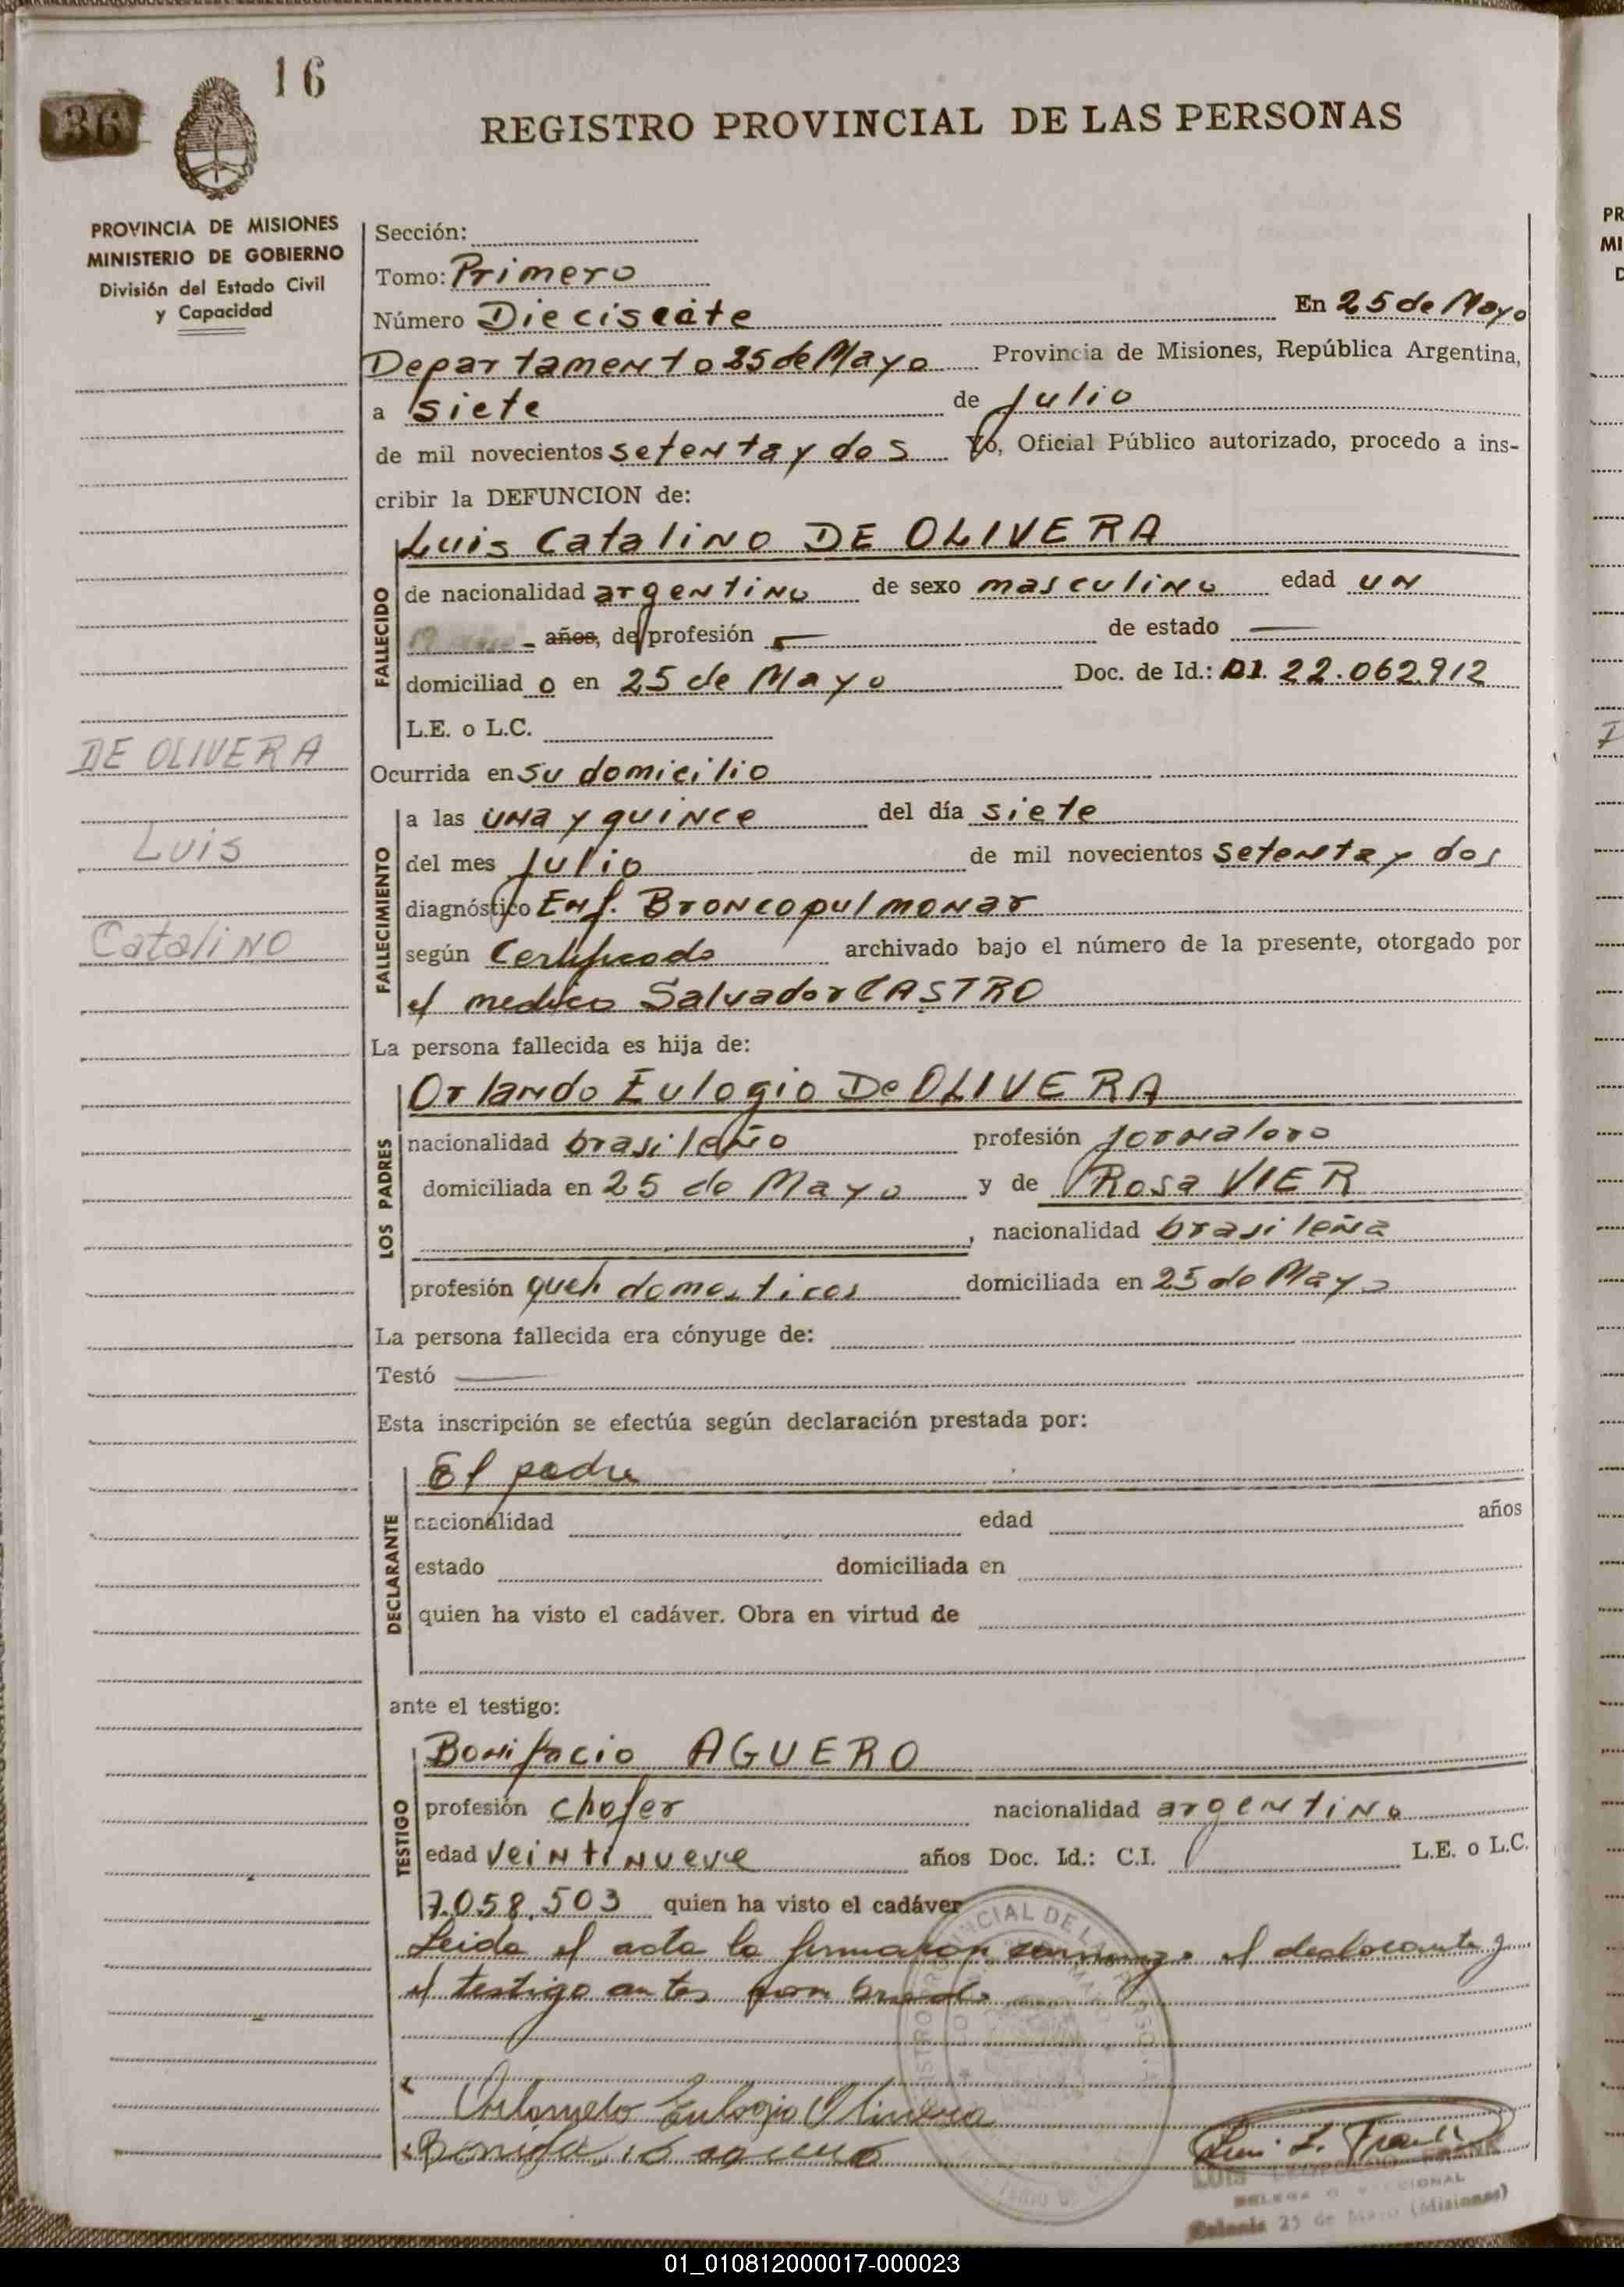 16
36
REGISTRO PROVINCIAL DE LAS PERSONAS
PROVINCIA DE MISIONES
MINISTERIO DE GOBIERNO
División del Estado Civil
y Capacidad
Sección:
Tomo: Primero
Número Diecisiete En 25 de Mayo
Departamento 25 de Mayo Provincia de Misiones, República Argentina,
a siete de Julio
de mil novecientos setenta y dos Yo, Oficial Público autorizado, procedo a ins-
cribir la DEFUNCION de:
Luis Catalino DE OLIVERA
FALLECIDO
de nacionalidad argentino de sexo masculino edad un
años, de profesión — de estado —
domiciliad o en 25 de Mayo Doc. de Id.: DI. 22.062.912
L.E. o L.C.
DE OLIVERA
Luis
Catalino
Ocurrida en su domicilio
FALLECIMIENTO
a las una y quince del día siete
del mes Julio de mil novecientos setenta y dos
diagnóstico Enf. Broncopulmonar
según Certificado archivado bajo el número de la presente, otorgado por
el medico Salvador CASTRO
La persona fallecida es hija de:
LOS PADRES
Orlando Eulogio De OLIVERA
nacionalidad brasileño profesión jornalero
domiciliada en 25 de Mayo y de Rosa VIER
, nacionalidad brasileña
profesión queh domesticos domiciliada en 25 de Mayo
La persona fallecida era cónyuge de:
Testó —
Esta inscripción se efectúa según declaración prestada por:
DECLARANTE
El padre
nacionalidad edad años
estado domiciliada en
quien ha visto el cadáver. Obra en virtud de
ante el testigo:
TESTIGO
Bonifacio AGUERO
profesión chofer nacionalidad argentino
edad veintinueve años Doc. Id.: C.I. L.E. o L.C.
7.058.503 quien ha visto el cadáver
Leida el acta la firmaron conmigo el declarante y
el testigo antes nombrado
Orlando Eulogio Olivera
Bonifacio aguero
Luis L. Frank
LUIS LEOPOLDO FRANK
Colonia 25 de Mayo (Misiones)
01_010812000017-000023